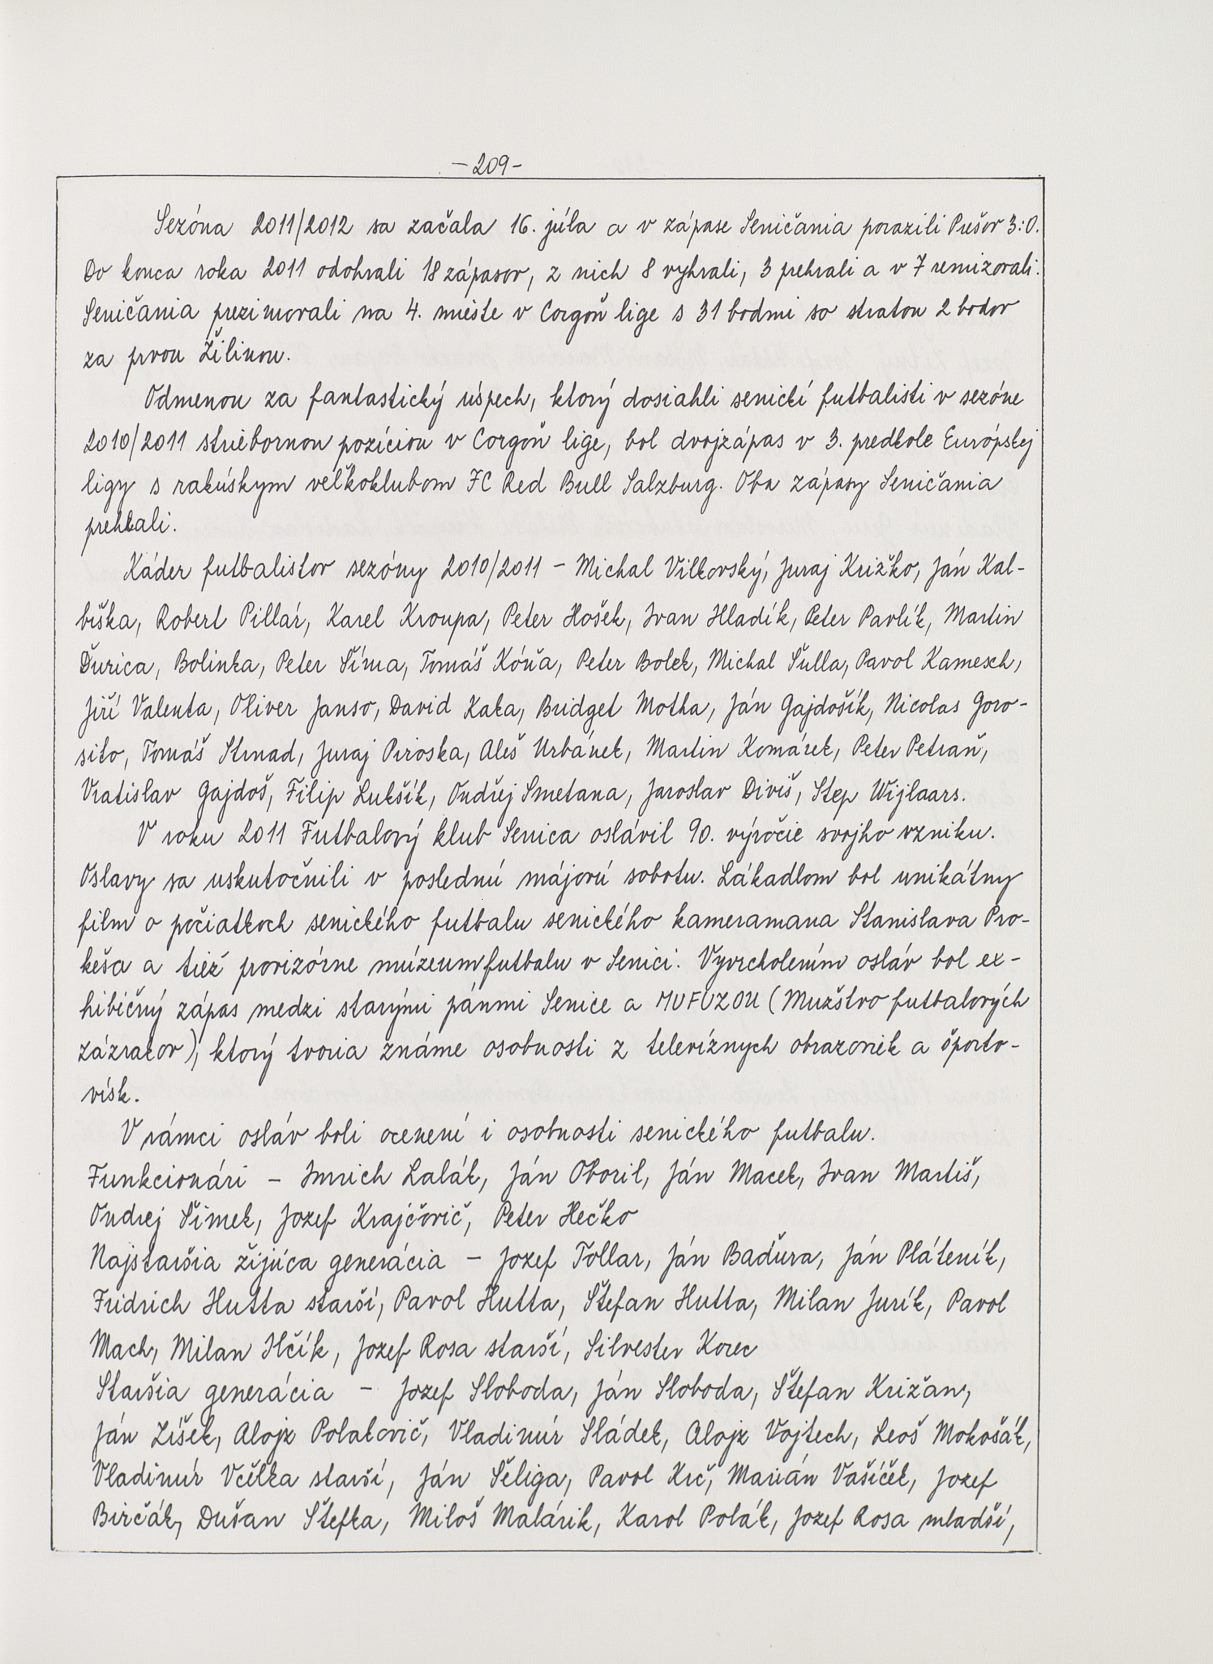 -209-
Sezóna 2011/2012 sa začala 16. júla a v zápase Seničania porazili Prešov 3:0.
Do konca roka 2011 odohrali 18 zápasov, z nich 8 vyhrali, 3 prehrali a v 7 remizovali.
Seničania prezimovali na 4. mieste v Corgoň lige s 31 bodmi so stratou 2 bodov
za prvou Žilinou.
Odmenou za fantastický úspech, ktorý dosiahli senickí futbalisti v sezóne
2010/2011 striebornou pozíciou v Corgoň lige, bol dvojzápas v 3. predkole Európskej
ligy s rakúskym veľkoklubom FC Red Bull Salzburg. Oba zápasy Seničania
prehrali.
Káder futbalistov sezóny 2010/2011 - Michal Vilkovský, Juraj Križko, Ján Kal-
biška, Robert Pillár, Karel Kroupa, Peter Hošek, Ivan Hladík, Peter Pavlík, Martin
Ďurica, Bolinha, Peter Šíma, Tomáš Kóňa, Peter Bolek, Michal Šulla, Pavol Kamesch,
Jiří Valenta, Oliver Janso, David Kaka, Bridget Motha, Ján Gajdošík, Nicolas Goro-
sito, Tomáš Strnad, Juraj Piroska, Aleš Urbánek, Martin Komárek, Peter Petráň,
Vratislav Gajdoš, Filip Lukšík, Ondřej Smetana, Jaroslav Diviš, Step Wijlaars.
V roku 2011 Futbalový klub Senica oslávil 90. výročie svojho vzniku.
Oslavy sa uskutočnili v poslednú májovú sobotu. Lákadlom bol unikátny
film o počiatkoch senického futbalu senického kameramana Stanislava Pro-
keša a tiež provizórne múzeum futbalu v Senici. Vyvrcholením osláv bol ex-
hibičný zápas medzi starými pánmi Senice a MUFUZOU (Mužstvo futbalových
zázrakov), ktorý tvoria známe osobnosti z televíznych obrazoviek a športo-
vísk.
V rámci osláv boli ocenení i osobnosti senického futbalu.
Funkcionári - Imrich Lalák, Ján Oboril, Ján Macek, Ivan Martiš,
Ondrej Šimek, Jozef Krajčovič, Peter Hečko
Najstaršia žijúca generácia - Jozef Tollar, Ján Baďura, Ján Pláteník,
Fridrich Hutta starší, Pavol Hutta, Štefan Hutta, Milan Jurík, Pavol
Mach, Milan Hčík, Jozef Rosa starší, Silvester Korec
Staršia generácia - Jozef Sloboda, Ján Sloboda, Štefan Križan,
Ján Zíšek, Alojz Polakovič, Vladimír Sládek, Alojz Vojtech, Leoš Mokošák,
Vladimír Včelka starší, Ján Šeliga, Pavol Krč, Marián Vašíček, Jozef
Birčák, Dušan Štefka, Miloš Malárik, Karol Polák, Jozef Rosa mladší,